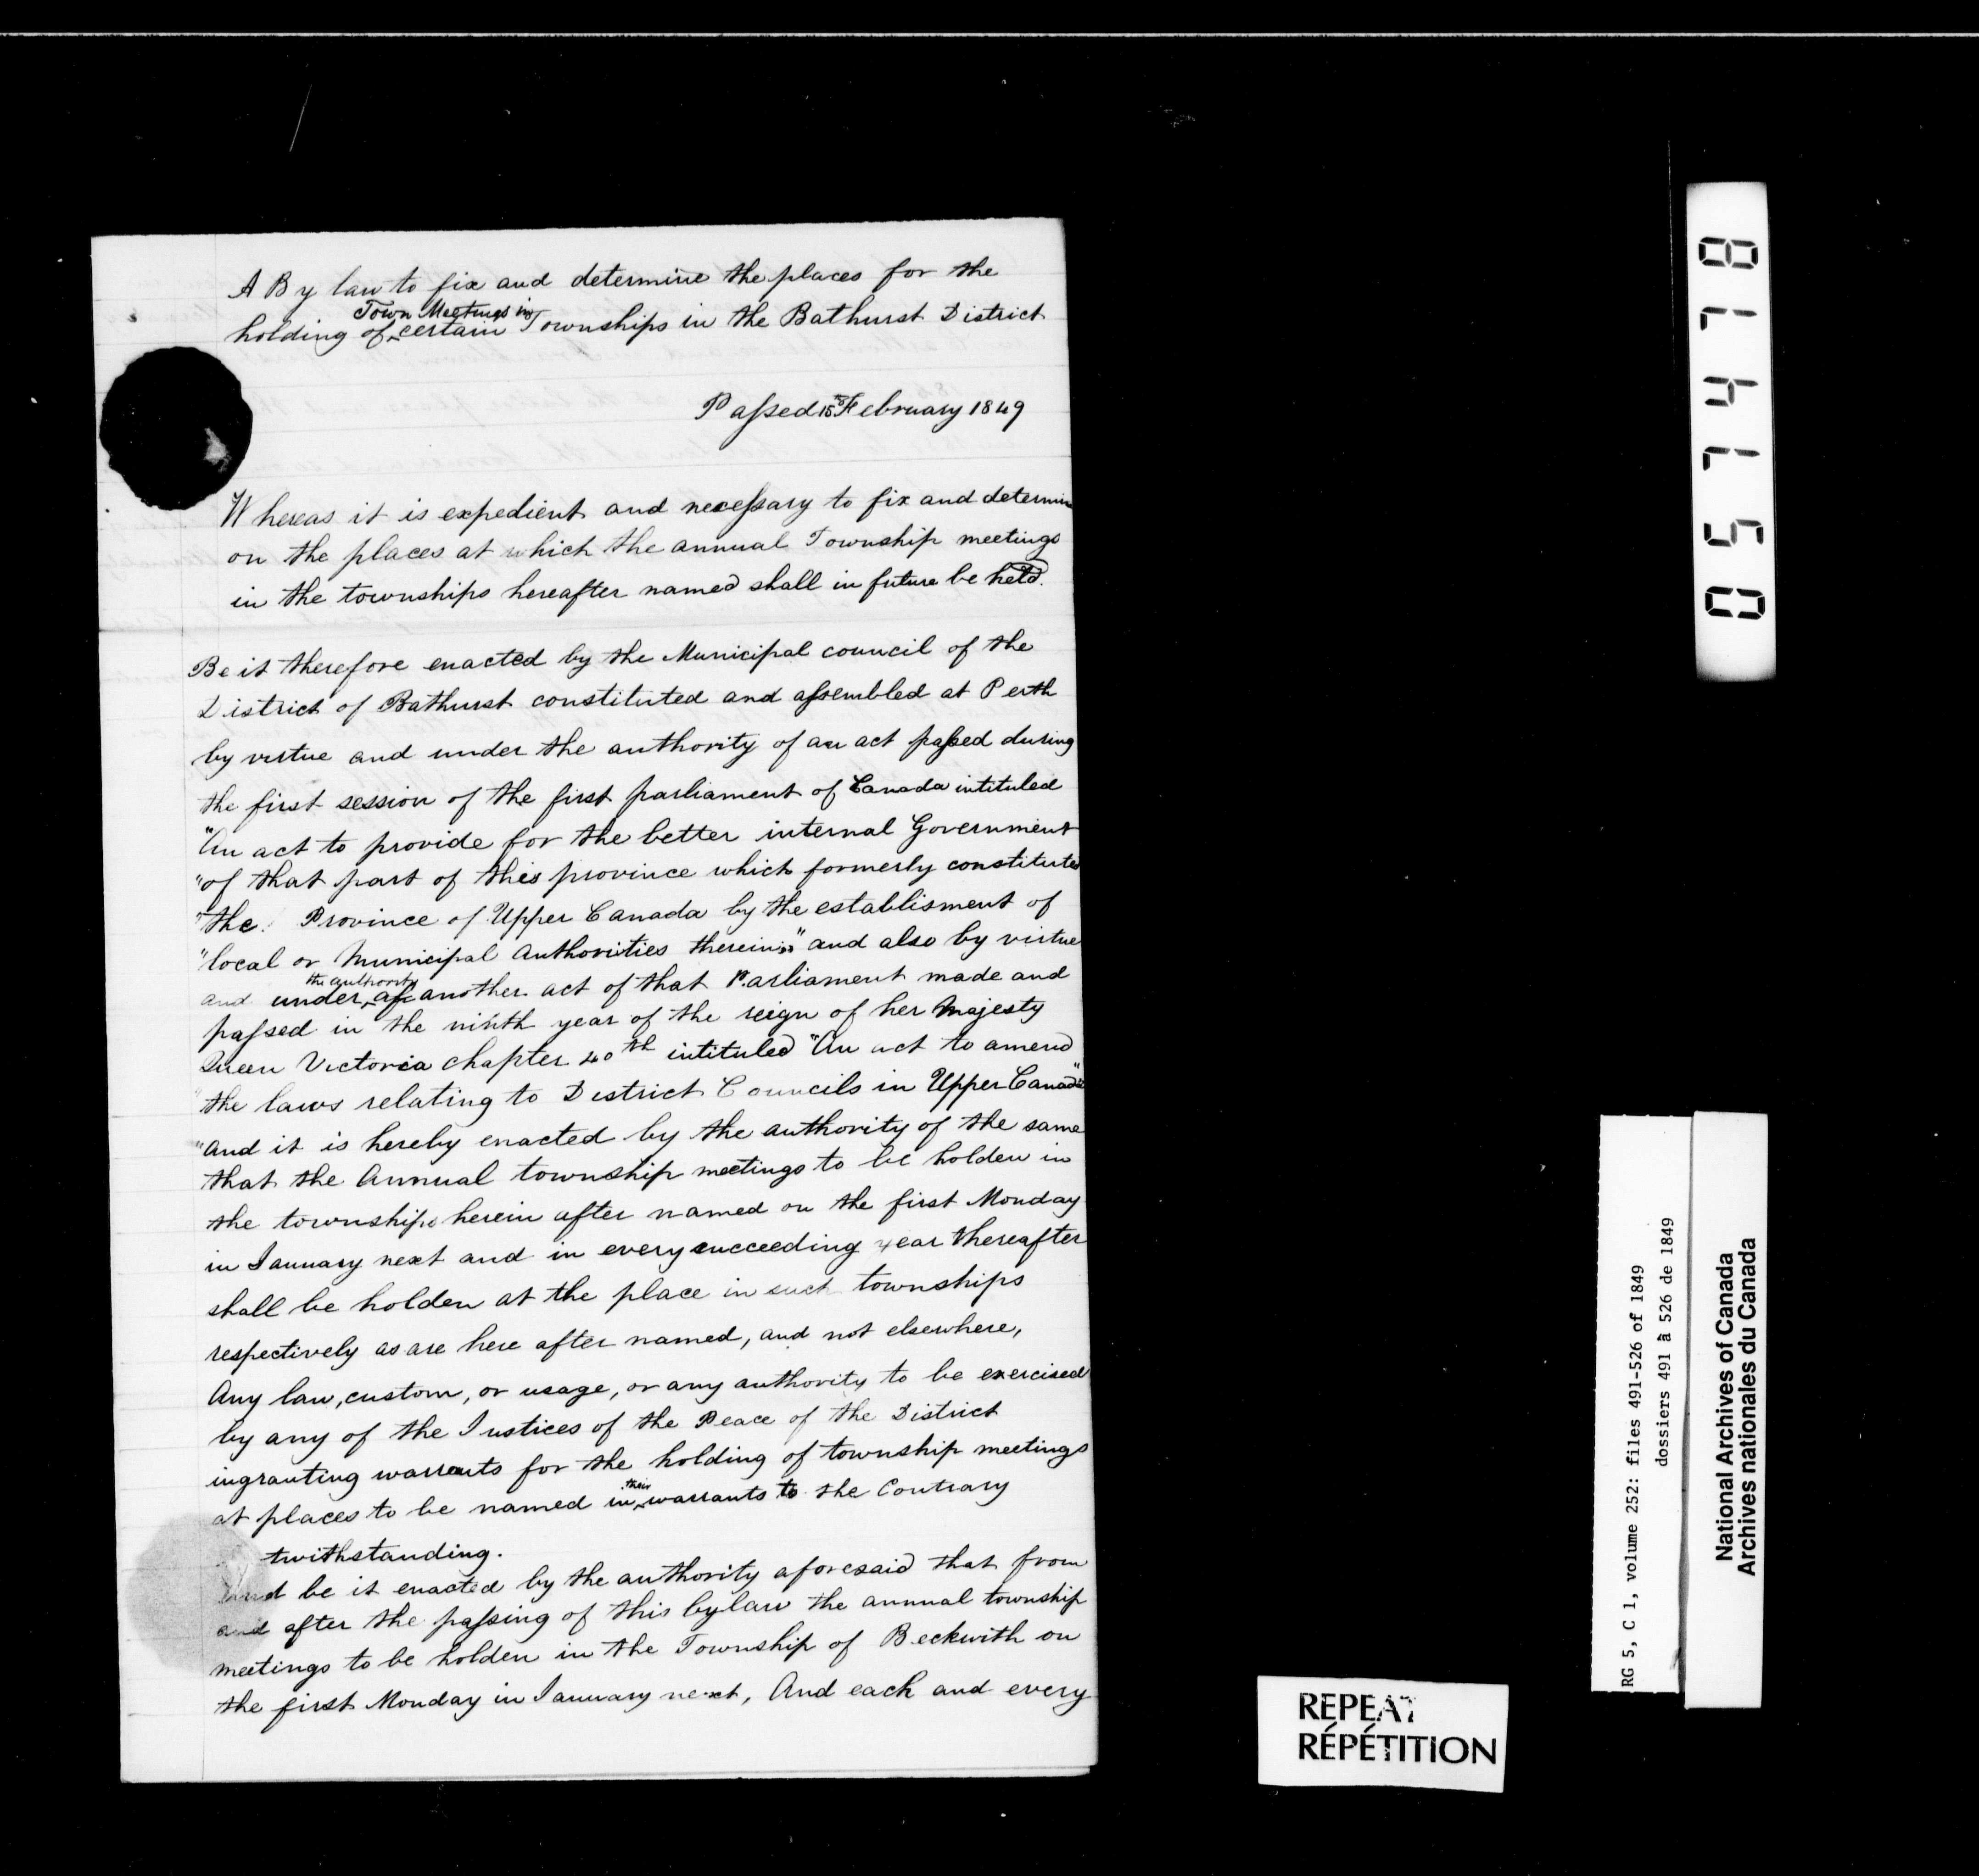 A By law to fix and determine the places for the
Town Meetings in
holding of certain Townships in the Bathurst District
Passed 15th February 1849
Whereas it is expedient and necessary to fix and determin
on the places at which the annual Township meetings
in the townships hereafter named shall in future be held.
Be it therefore enacted by the Municipal council of the
District of Bathurst constituted and assembled at Perth
by virtue and under the authority of an act passed during
the first session of the first parliament of Canada intituled
"An act to provide for the better internal Government
"of that part of this province which formerly constituted
"the Province of Upper Canada by the establisment of
"local or Municipal Authorities therein;" and also by virtue
the authority
and under of another act of that Parliament made and
passed in the ninth year of the reign of her Majesty
Queen Victoria chapter 40th intituled "An act to amend
"the laws relating to District Councils in Upper Canada"
"And it is hereby enacted by the authority of the same
that the Annual township meetings to be holden in
the townships herein after named on the first Monday
in January next and in every succeeding year thereafter
shall be holden at the place in such townships
respectively as are here after named, and not elsewhere,
Any law, custom, or usage, or any authority to be exercised
by any of the Justices of the Peace of the District
in granting warrants for the holding of township meetings
their
at places to be named in warrants to the Contrary
twithstanding.
And be it enacted by the authority aforesaid that from
and after the passing of this bylaw the annual township
meetings to be holden in the Township of Beckwith on
the first Monday in January next, And each and every
051418
RG 5, C 1, volume 252: files 491-526 of 1849
dossiers 491 à 526 de 1849
National Archives of Canada
Archives nationales du Canada
REPEAT
RÉPÉTITION